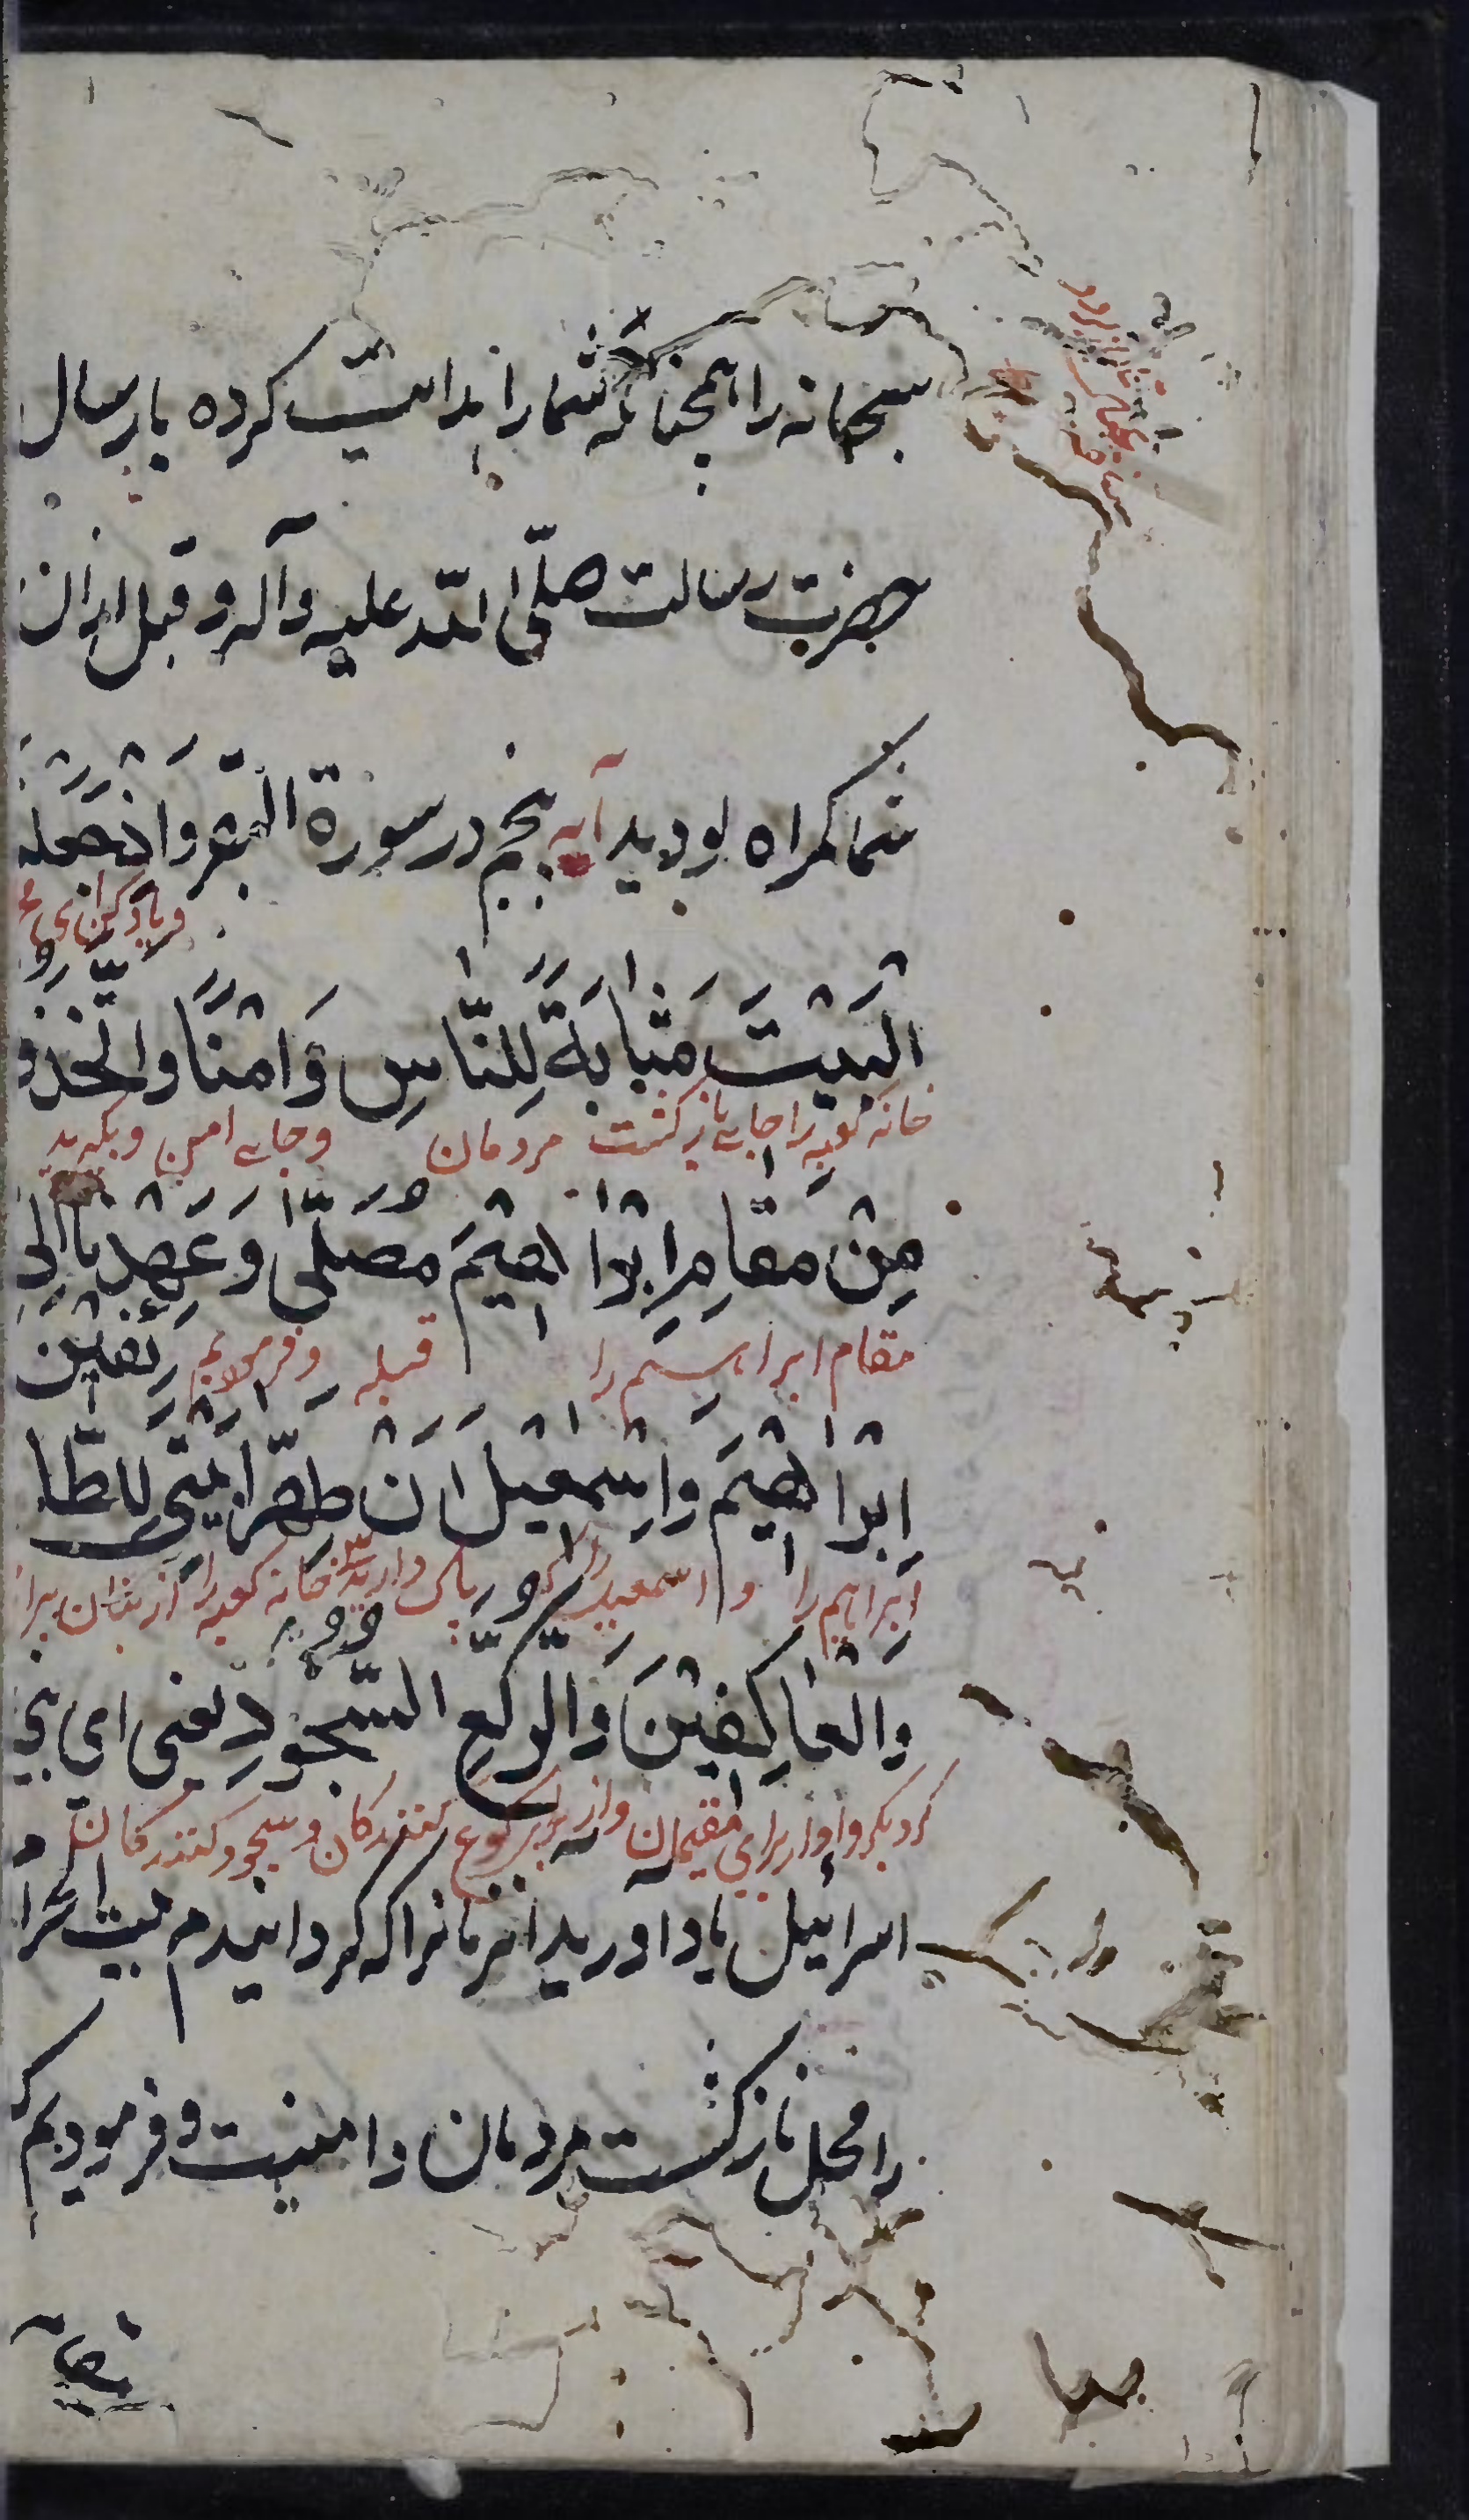 سبحانه را همچنانکه شما را هدایت کرده بارسال
حضرت رسالت صلّی اللّه علیه وآله و قبل ازان
شما کمراه بودید آیه پنجم در سورة البقر وَاِذْ جَعَلْنَا
و یاد کن ای
الْبَیْتَ مَثَابَةً لِلنَّاسِ وَ اَمْنًا وَاتَّخِذُو
خانه کعبه را جای بازکشت مردمان وجای امن وبکیرید
مِنْ مَقَامِ اِبْرٰاهٖیمَ مُصَلًّی وَعَهِدْنَا اِلٰی
مقام ابراهیم را قبله و فرمودیم
اِبْرٰاهٖیمَ وَاِسْمٰعٖیلَ اَنْ طَهِّرٰا بَیْتِیَ لِلطَّا
ئِفٖینَ
ابراهیم را و اسمعیل را که پاک دارید خانه کعبه را از بتان برا
وَالْعٰاکِفٖینَ وَالرُّکَّعِ السُّجُودِ یعنی ای بنی
مقیمان و از برای رکوع کنندکان و سجود کنندکان
اسرائیل یاد اورید انزمانرا که کردانیدم بیت الحرا
را محل بازکشت مردمان وامنیت و فرمودیم که